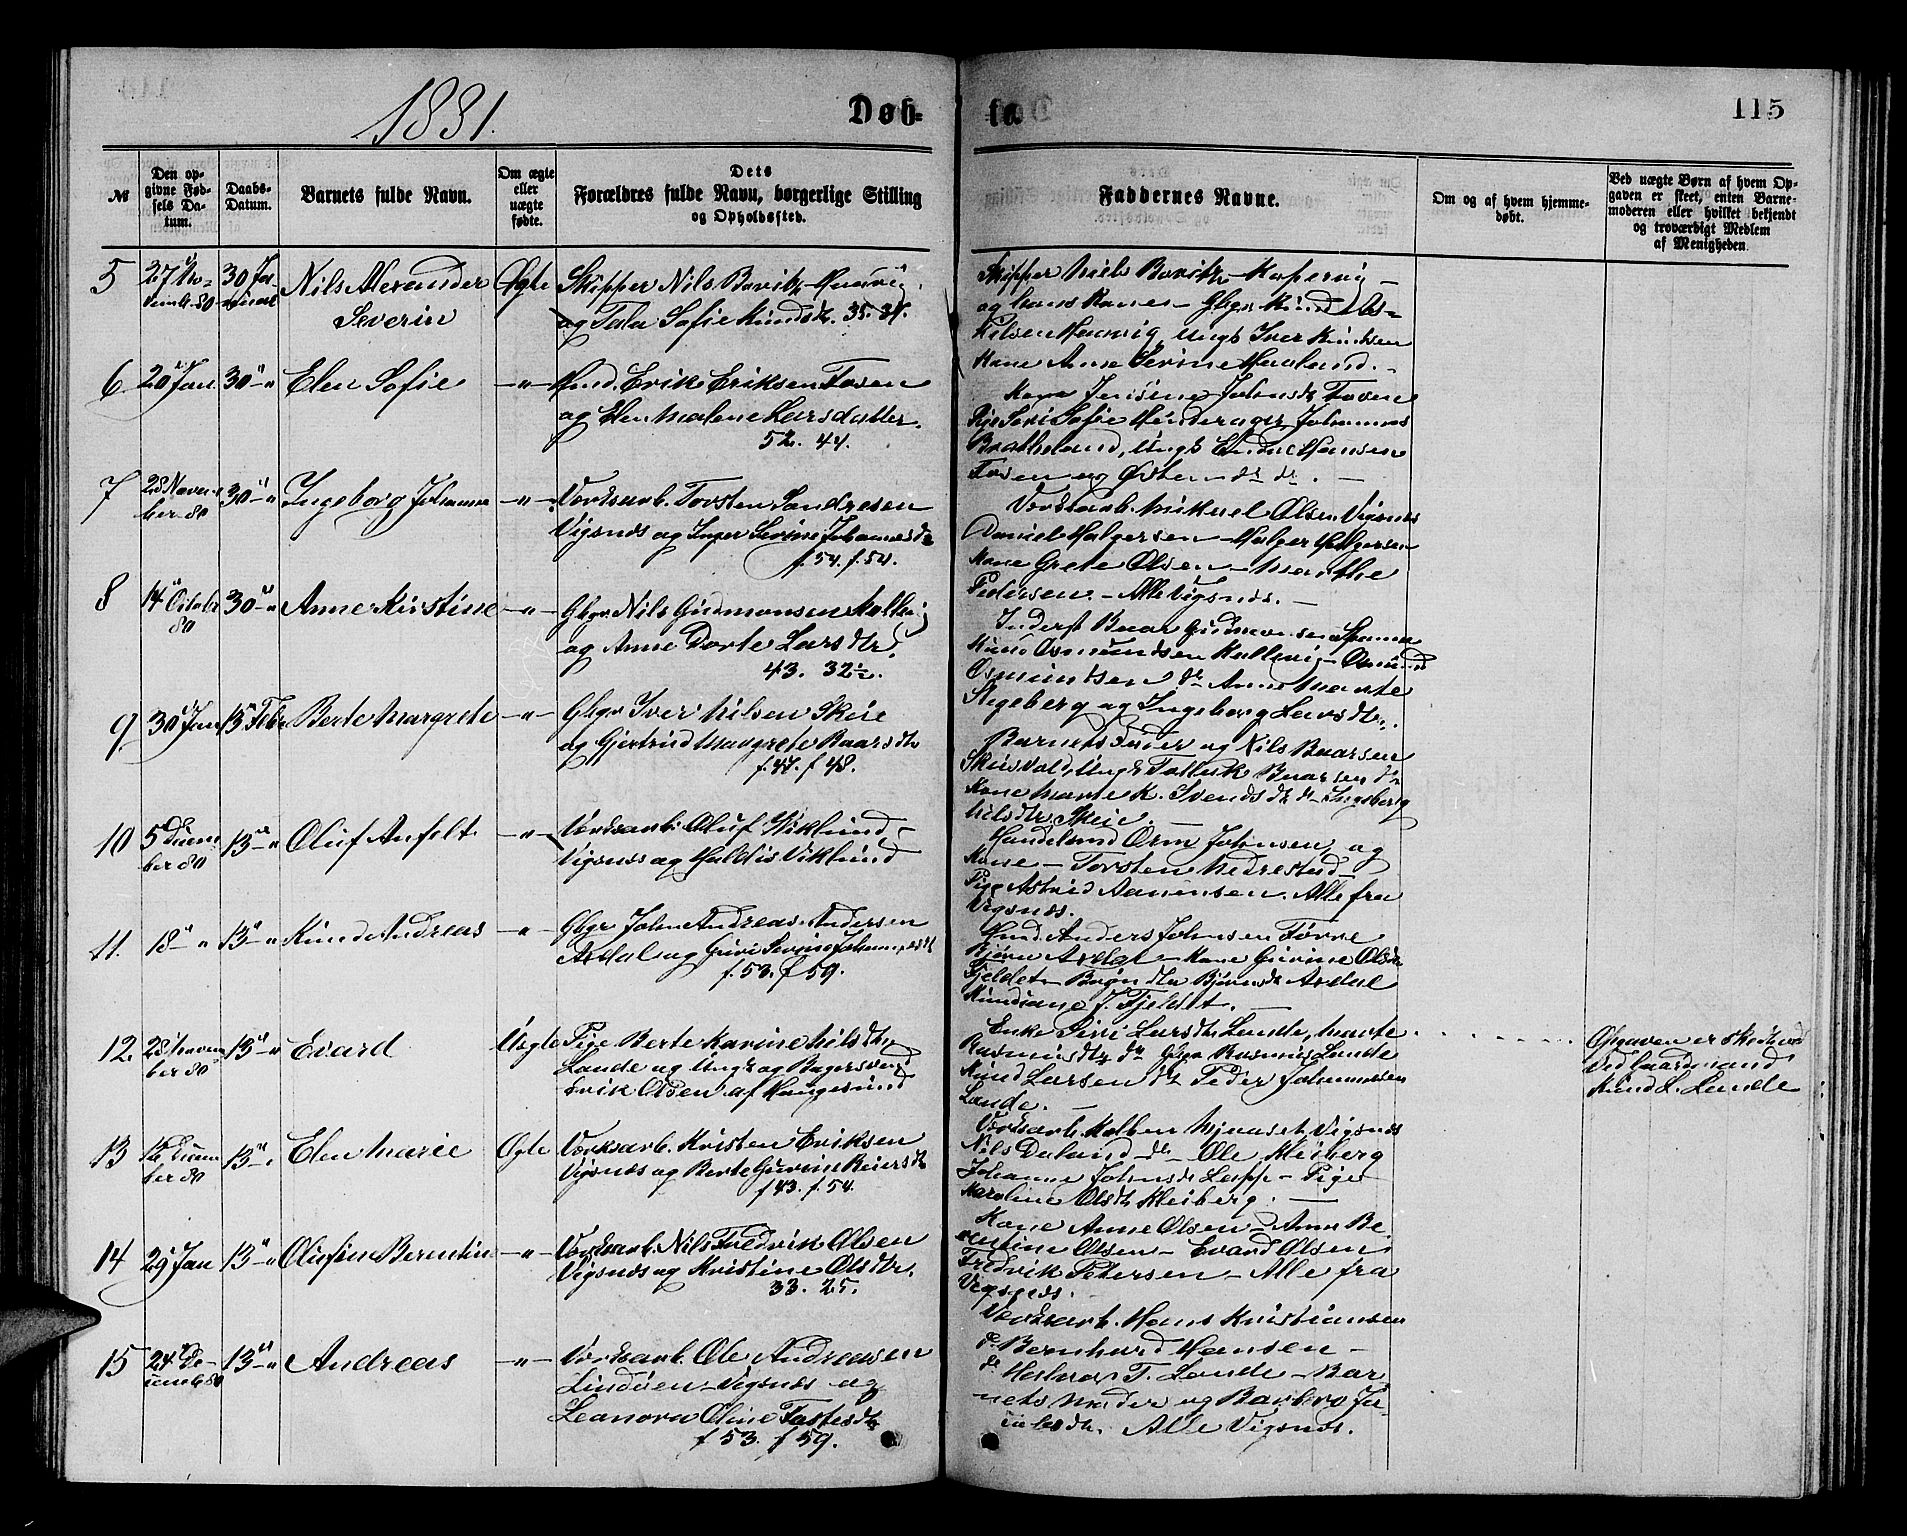 1881.
Døb-
te
115
№
Den op-
givne Fød-
sels Da-
tum.
Daabs-
Datum.
Barnets fulde Navn.
Om ægte
eller
uægte
fødte.
Dets
Forældres fulde Navn, borgerlige Stilling
og Opholdssted.
Faddernes Navne.
Om og af hvem hjemme-
døbt.
Ved uægte Børn af hvem Op-
gaven er skeet, enten Barne-
moderen eller hvilket bekjendt
og troværdigt Medlem
af Menigheden.
5
27 No-
vemb. 80
30 Ja-
nuar
Nils Alexander
Severin
Ægte
Skipper Nils Bovitz
og Tala Sofie Knudsdtr. 35. 31.
Skipper Niels Bovitz Kopervig
og hans Kone Gbgr. Knud As-
Kilsen Ungk Iver Knudsen
Kone Anne Serine Høvland.
6
20 Jan.
30 "
Elen Sofie
-"-
Hmd. Erik Eriksen Fosen
og Elen Malene Larsdatter.
52. 44.
Kone Jensine Johnsdtr Fosen
Pige Siri Sofie Hinderager, Johannes
Ungk Endre Hansen
Fosen og Østen do do.
7
28 Novem-
ber 80
30 "
Ingeborg Johanna
-"-
Værksarb. Torsten Sandresen
Vigsnæs og Inger Serine Johannesdtr
f. 54. f. 54.
Værksarb. Mikael Olsen Vigsnes
Daniel Holgersen Holger Holgersen
Kone Grete Olsen Marthe
Pedersen. Alle Vigsnæs.
8
14 Octobr
80
30 "
Anne Kirstine
-"-
Gbgr. Nils Gudmonsen
og Anne Dorte Larsdtr.
43. 32½.
Inderst Baar Gudmonsen Spanne
Knud Osmundsen Kallevig Osmund
Osmundsen do Anne Marte
Stegeberg og Ingeborg Larsdtr.
9
30 Jan
13 Febr
Berte Margrete
-"-
Gbgr Iver Nilsen Skeie
og Gjertrud Margrete Baarsdtr
f. 47. f 48.
Barnets Fader og Nils Baarsen
Skeisvold, Ungk Tollak Baarsen do
Kone Marte K. Svendsdtr do Ingeborg
Nilsdtr Skeie.
10
5 Decem-
ber 80
13 "
Oluf Anfelt
-"-
Værksarb. Oluf Wiklund
Vigsnæs og Haldis Viklund
Handelsmd Orm Johnsen, og
Kone Torsten Nedrestad
Pige Astrid Aanensen. Alle fra
Vigsnæs.
11.
18 " "
13 "
Knud Andreas
-"-
Gbgr John Andreas Andersen
Ardal og Guri Serine Johannesdtr
f. 53. f 59.
Hmd. Anders Johnsen Førre
Bjørn Ardal Kone Gurine Olsdtr
Fjeldet Bjørnsdtr Ardal
J. Fjeldet.
12.
28 Novem-
ber 80
13 "
Evard
Uægte
Pige Berte Karine Nilsdtr
Lande og Ungk og Bagersvend
Erik Olsen af Haugesund
Enke Siri Larsdtr Lande, Marte
Rasmusdtr do Gbgr Rasmus Lande
Knud Larsen do Peder Johannesen
Lande.
Opgaven er skeet ved
Ved Gaardmand
Knud L. Lande
13
16 Decem-
ber 80
13 "
Elen Marie
Ægte
Værksarb. Kristen Eriksen
Vigsnæs og Berte Gurine Reiersdtr
f 43. f. 54.
Værksarb. Kolben Mjuaset Vigsnæs
Nils Daland do Ole Kleiberg
Johanne Johnsdtr Leppe Pige
Karoline Olsdtr Kleiberg.
14
29 Jan
13 "
Olufin Berentin
-"-
Værksarb. Nils Fredrik Olsen
Vigsnæs og Kristine Olsdtr.
33. 25.
Kone Anne Olsen Anne Be-
rentine Olsen Evard Olsen
Fredrik Petersen Alle fra
Vigsnæs.
15
24 De-
cemb 80
13 "
Andreas
-"-
Værksarb. Ole Andreasen
Lindøen Vigsnæs og
Leanora Oline Tostesdtr
f 53. f 59.
Værksarb. Hans Kristiansen
do Bernhard Hansen
do T. Lande Bar-
nets Moder og Barbro Ja-
cobsdtr. Alle Vigsnæs.